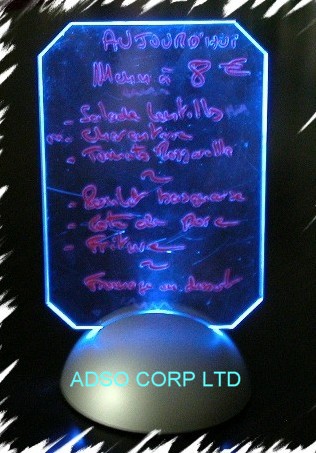 AUJOURD'HUI
Menu à 8 €
- Salade lentilles
Charcuterie
- Tomate Mozzarella
~
- Poulet basquaise
- Cote de Porc
- Friture
~
Fromage ou dessert
ADSO CORP LTD